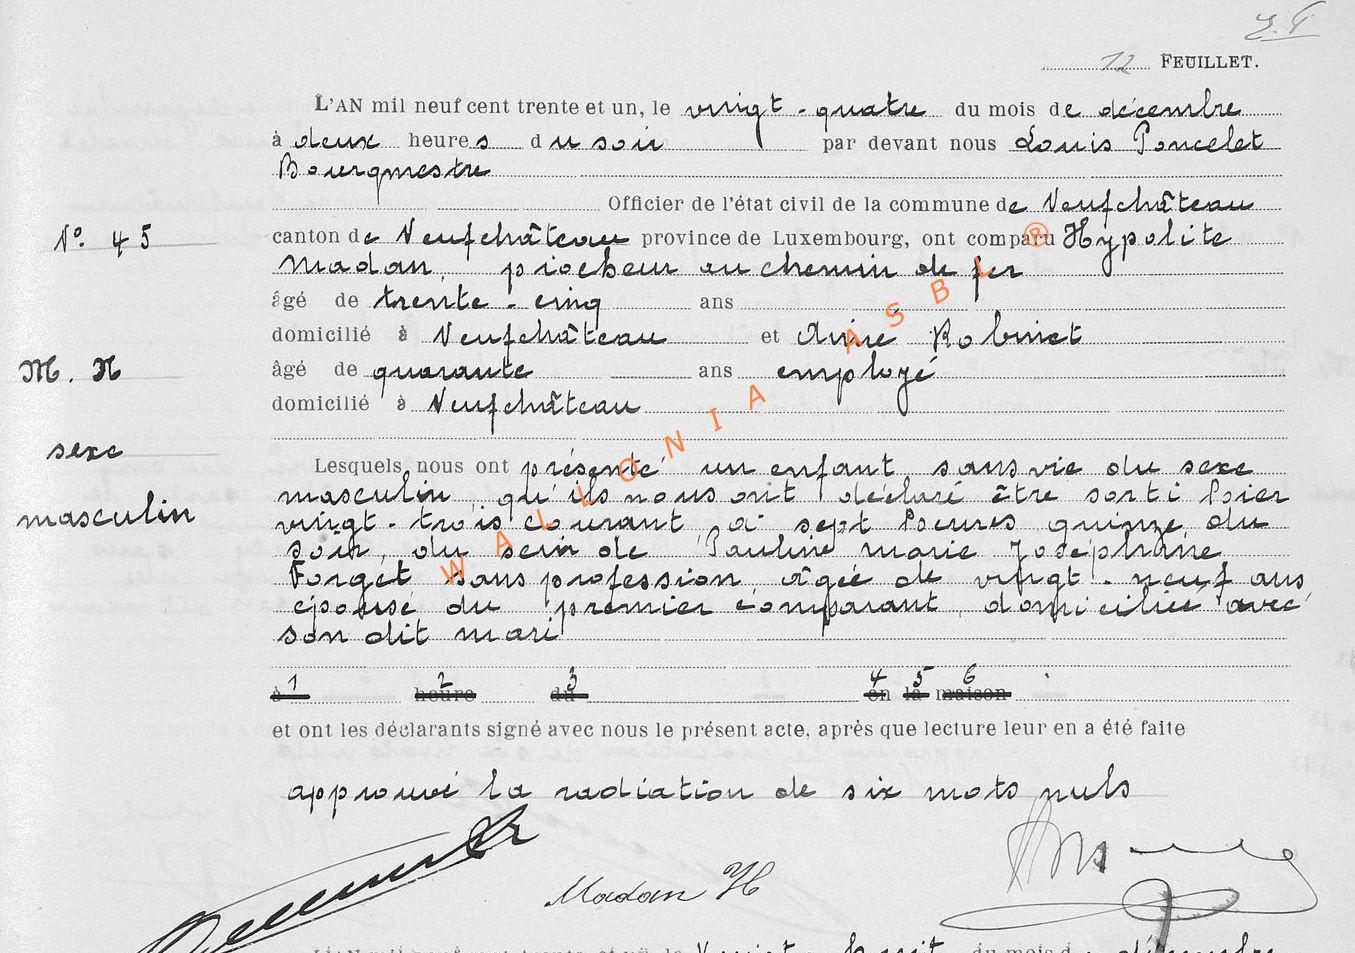 12 FEUILLET.
L'AN mil neuf cent trente et un, le vingt-quatre du mois de décembre
à deux heures du soir par devant nous Louis Poncelet
Bourgmestre
Officier de l'état civil de la commune de Neufchâteau
N°. 45
canton de Neufchâteau province de Luxembourg, ont comparu Hypolite
Madan, piocheur au chemin de fer
âgé de trente-cinq ans
domicilié à Neufchâteau et Aimé Robinet
M. N
âgé de quarante ans employé
domicilié à Neufchâteau
sexe
masculin
Lesquels nous ont présenté un enfant sans vie du sexe
masculin, qu'ils nous ont déclaré être sorti hier
vingt-trois courant à sept heures quinze du
soir, du sein de Pauline Marie Joséphine
Forgét sans profession âgée de vingt-neuf ans
épouse du premier comparant, domiciliée avec
son dit mari
à 1 heure 2 du 3 en 4 la 5 maison 6
et ont les déclarants signé avec nous le présent acte, après que lecture leur en a été faite
approuvé la radiation de six mots nuls
Madan H
L'AN mil neuf cent trente et un, le Vingt-huit du mois de décembre
WALLONIA ASBL ®